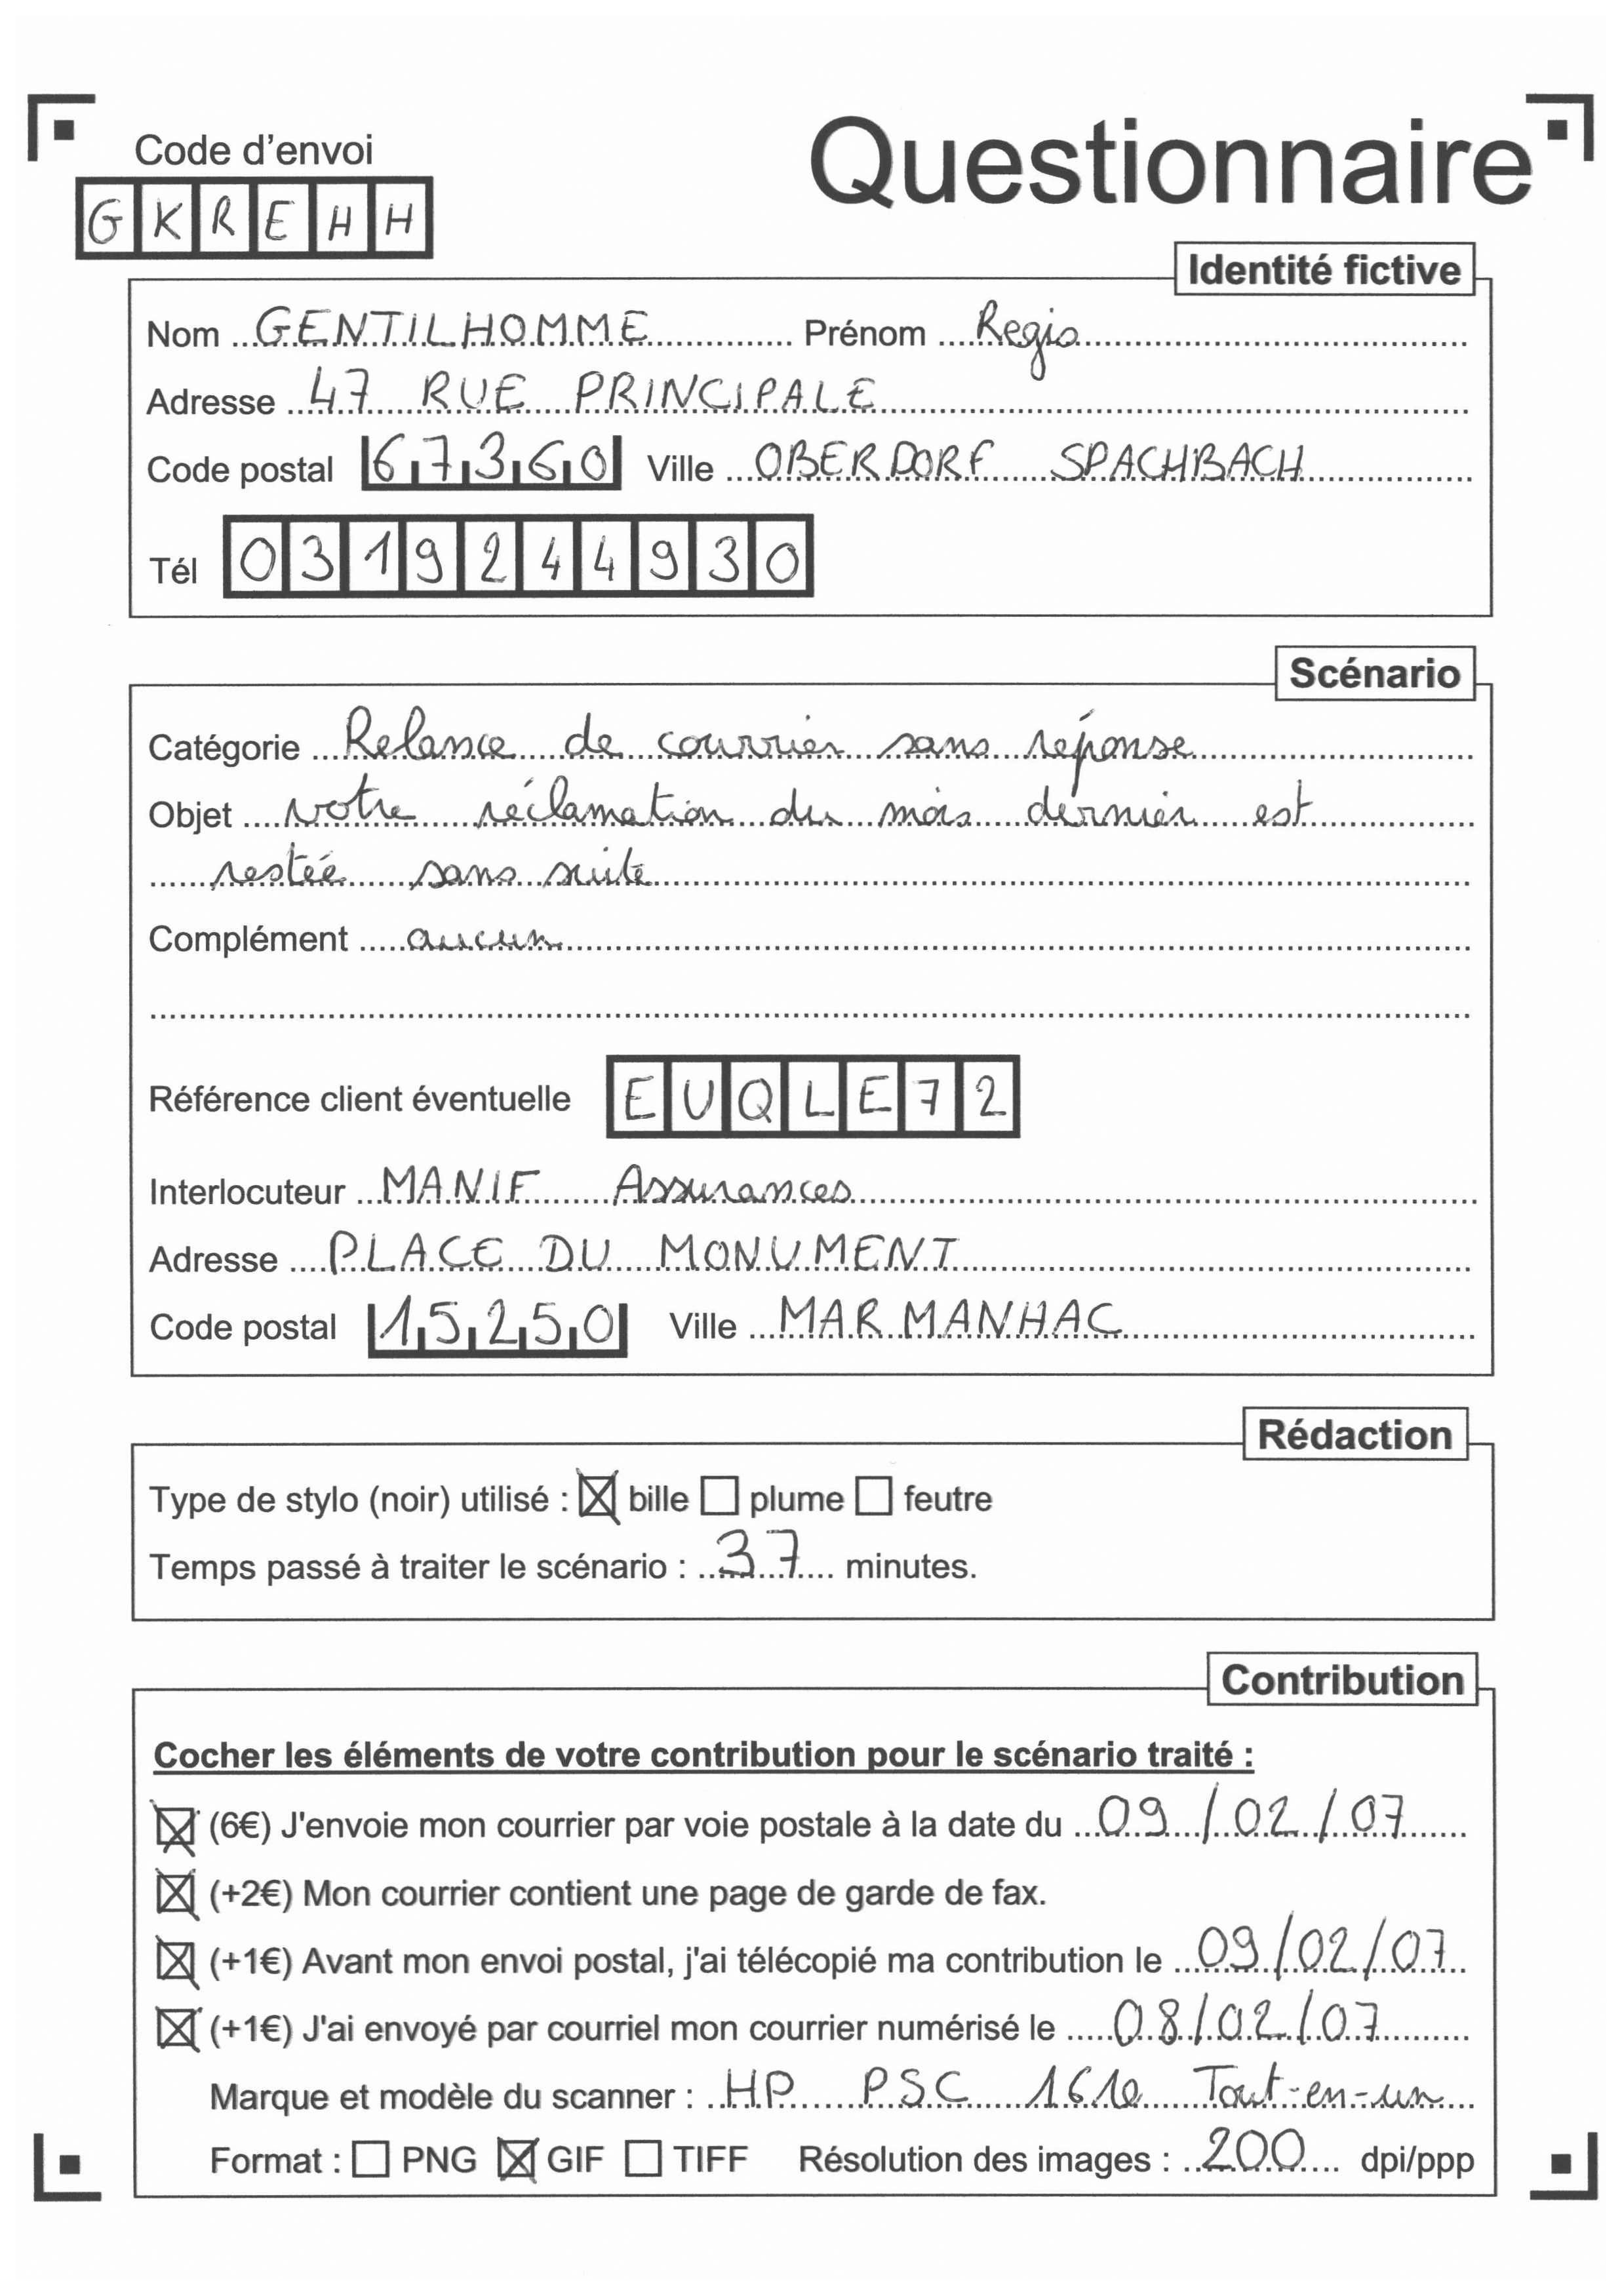 Questionnaire
Code d'envoi
GKREHH
Identité fictive
Nom GENTILHOMME Prénom Regis
Adresse 47 RUE PRINCIPALE
Code postal 67360 Ville OBERDORF SPACHBACH
Tél 0319244930
Scénario
Catégorie Relance de courrier sans réponse
Objet votre réclamation du mois dernier est
restée sans suite
Complément aucun
Référence client éventuelle EUQLE72
Interlocuteur MANIF Assurances
Adresse PLACE DU MONUMENT
Code postal 15250 Ville MARMANHAC
Rédaction
Type de stylo (noir) utilisé : ☒ bille ☐ plume ☐ feutre
Temps passé à traiter le scénario : 37 minutes.
Contribution
Cocher les éléments de votre contribution pour le scénario traité :
☒ (6€) J'envoie mon courrier par voie postale à la date du 09/02/07
☒ (+2€) Mon courrier contient une page de garde de fax.
☒ (+1€) Avant mon envoi postal, j'ai télécopié ma contribution le 09/02/07
☒ (+1€) J'ai envoyé par courriel mon courrier numérisé le 08/02/07
Marque et modèle du scanner : HP PSC 1610 Tout-en-un
Format : ☐ PNG ☒ GIF ☐ TIFF Résolution des images : 200 dpi/ppp